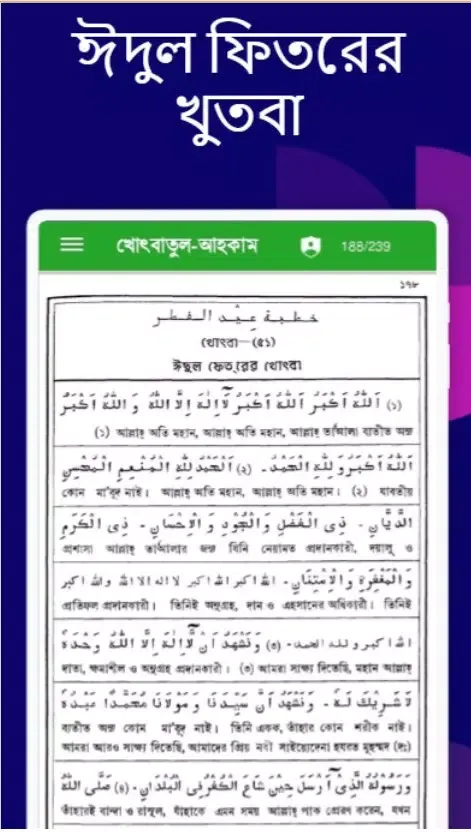 ঈদুল ফিতরের
খুতবা
খোৎবাতুল-আহকাম
188/239
১৭৮
خطبة عيد الفطر
খোৎবা—(৫১)
ঈদুল ফেত্‌রের খোৎবা
(١) اَللّٰهُ اَكْبَرُ اَللّٰهُ اَكْبَرُ لَا اِلٰهَ اِلَّا اللّٰهُ وَ اللّٰهُ اَكْبَرُ
(১) আল্লাহ্ অতি মহান, আল্লাহ্ অতি মহান, আল্লাহ্ তা'আলা ব্যতীত অন্য
اَللّٰهُ اَكْبَرُ وَلِلّٰهِ الْحَمْدُ۔ (٢) اَلْحَمْدُ لِلّٰهِ الْمُنْعِمِ الْمُحْسِنِ
কোন মা'বূদ নাই। আল্লাহ্ অতি মহান, আল্লাহ্ অতি মহান। (২) যাবতীয়
الدَّيَّانِ۔ ذِى الْفَضْلِ وَالْجُوْدِ وَ الْاِحْسَانِ۔ ذِى الْكَرَمِ
প্রশংসা আল্লাহ্ তা'আলার জন্য যিনি নেয়ামত প্রদানকারী, দয়ালু ও
وَالْمَغْفِرَةِ وَالْاِمْتِنَانِ۔ الله اكبر الله اكبر لا اله الا الله والله اكبر
প্রতিফল প্রদানকারী। তিনিই অনুগ্রহ, দান ও এহসানের অধিকারী। তিনিই
الله اكبر ولله الحمد۔ (٣) وَنَشْهَدُ اَنْ لَّا اِلٰهَ اِلَّا اللّٰهُ وَحْدَهٗ
দাতা, ক্ষমাশীল ও অনুগ্রহ প্রদানকারী। (৩) আমরা সাক্ষ্য দিতেছি, মহান আল্লাহ্
لَا شَرِيْكَ لَهٗ۔ وَنَشْهَدُ اَنَّ سَيِّدَنَا وَ مَوْلَانَا مُحَمَّدًا عَبْدُهٗ
ব্যতীত অন্য কোন মা'বূদ নাই। তিনি একক, তাঁহার কোন শরীক নাই।
আমরা আরও সাক্ষ্য দিতেছি, আমাদের প্রিয় নবী সাইয়্যেদেনা হযরত মুহম্মদ (দঃ)
وَرَسُوْلُهُ الَّذِىْ اُرْسِلَ حِيْنَ شَاعَ الْكُفْرُ فِى الْبُلْدَانِ۔ (٤) صَلَّى اللّٰهُ
তাঁহারই বান্দা ও রাসূল, যাঁহাকে এমন সময় আল্লাহ্ পাক প্রেরণ করেন, যখন